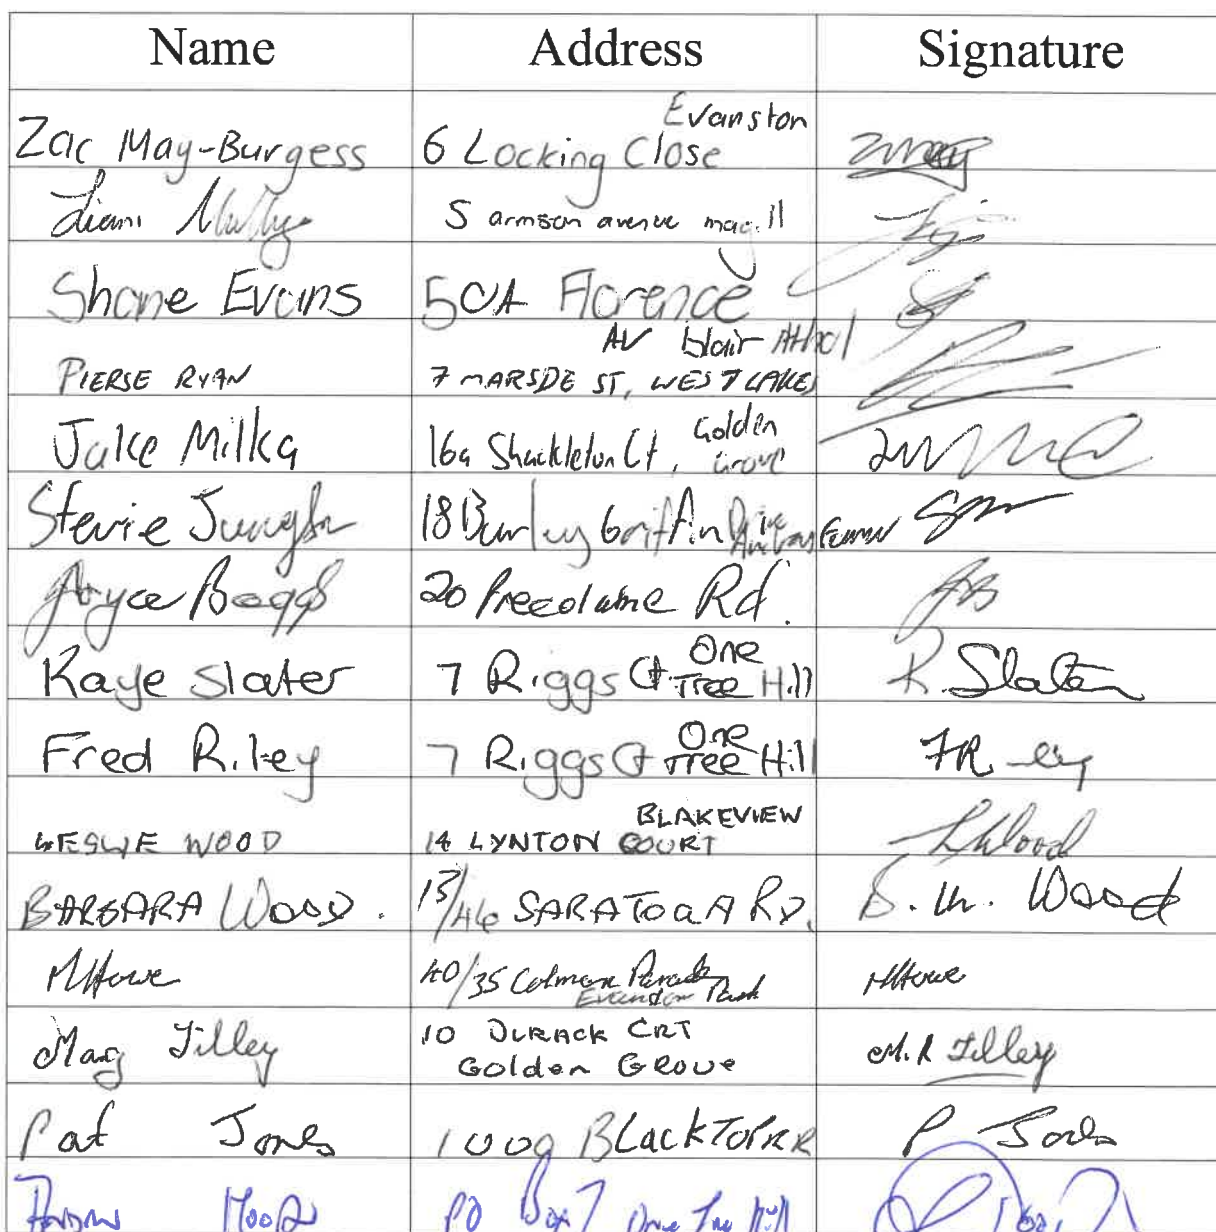 Name Address Signature
Evanston
Zac May-Burgess 6 Locking Close
Liam 5 armson avenue magill
Shane Evans 50A Florence
AV blair Athol
PIERSE RYAN 7 MARSDE ST, WEST LAKES
Jake Milka 16a Shackleton Ct, Golden Grove
Stevie 18 Burley Griffin Drive
Joyce Boggs 20 Rd.
Kaye Slater 7 Riggs Ct One Tree Hill K. Slater
Fred Riley 7 Riggs Ct One Tree Hill
BLAKEVIEW
LESLIE WOOD 14 LYNTON COURT LWood
BARBARA WOOD. 13/46 SARATOGA RD. B. M. Wood
MHowe 40/35 Parade MHowe
Mag Tilley 10 DURACK CRT M.R Tilley
Golden Grove
Pat Jones 1009 BLACKTOP RR P Jones
Moore PO Box 7 One Tree Hill